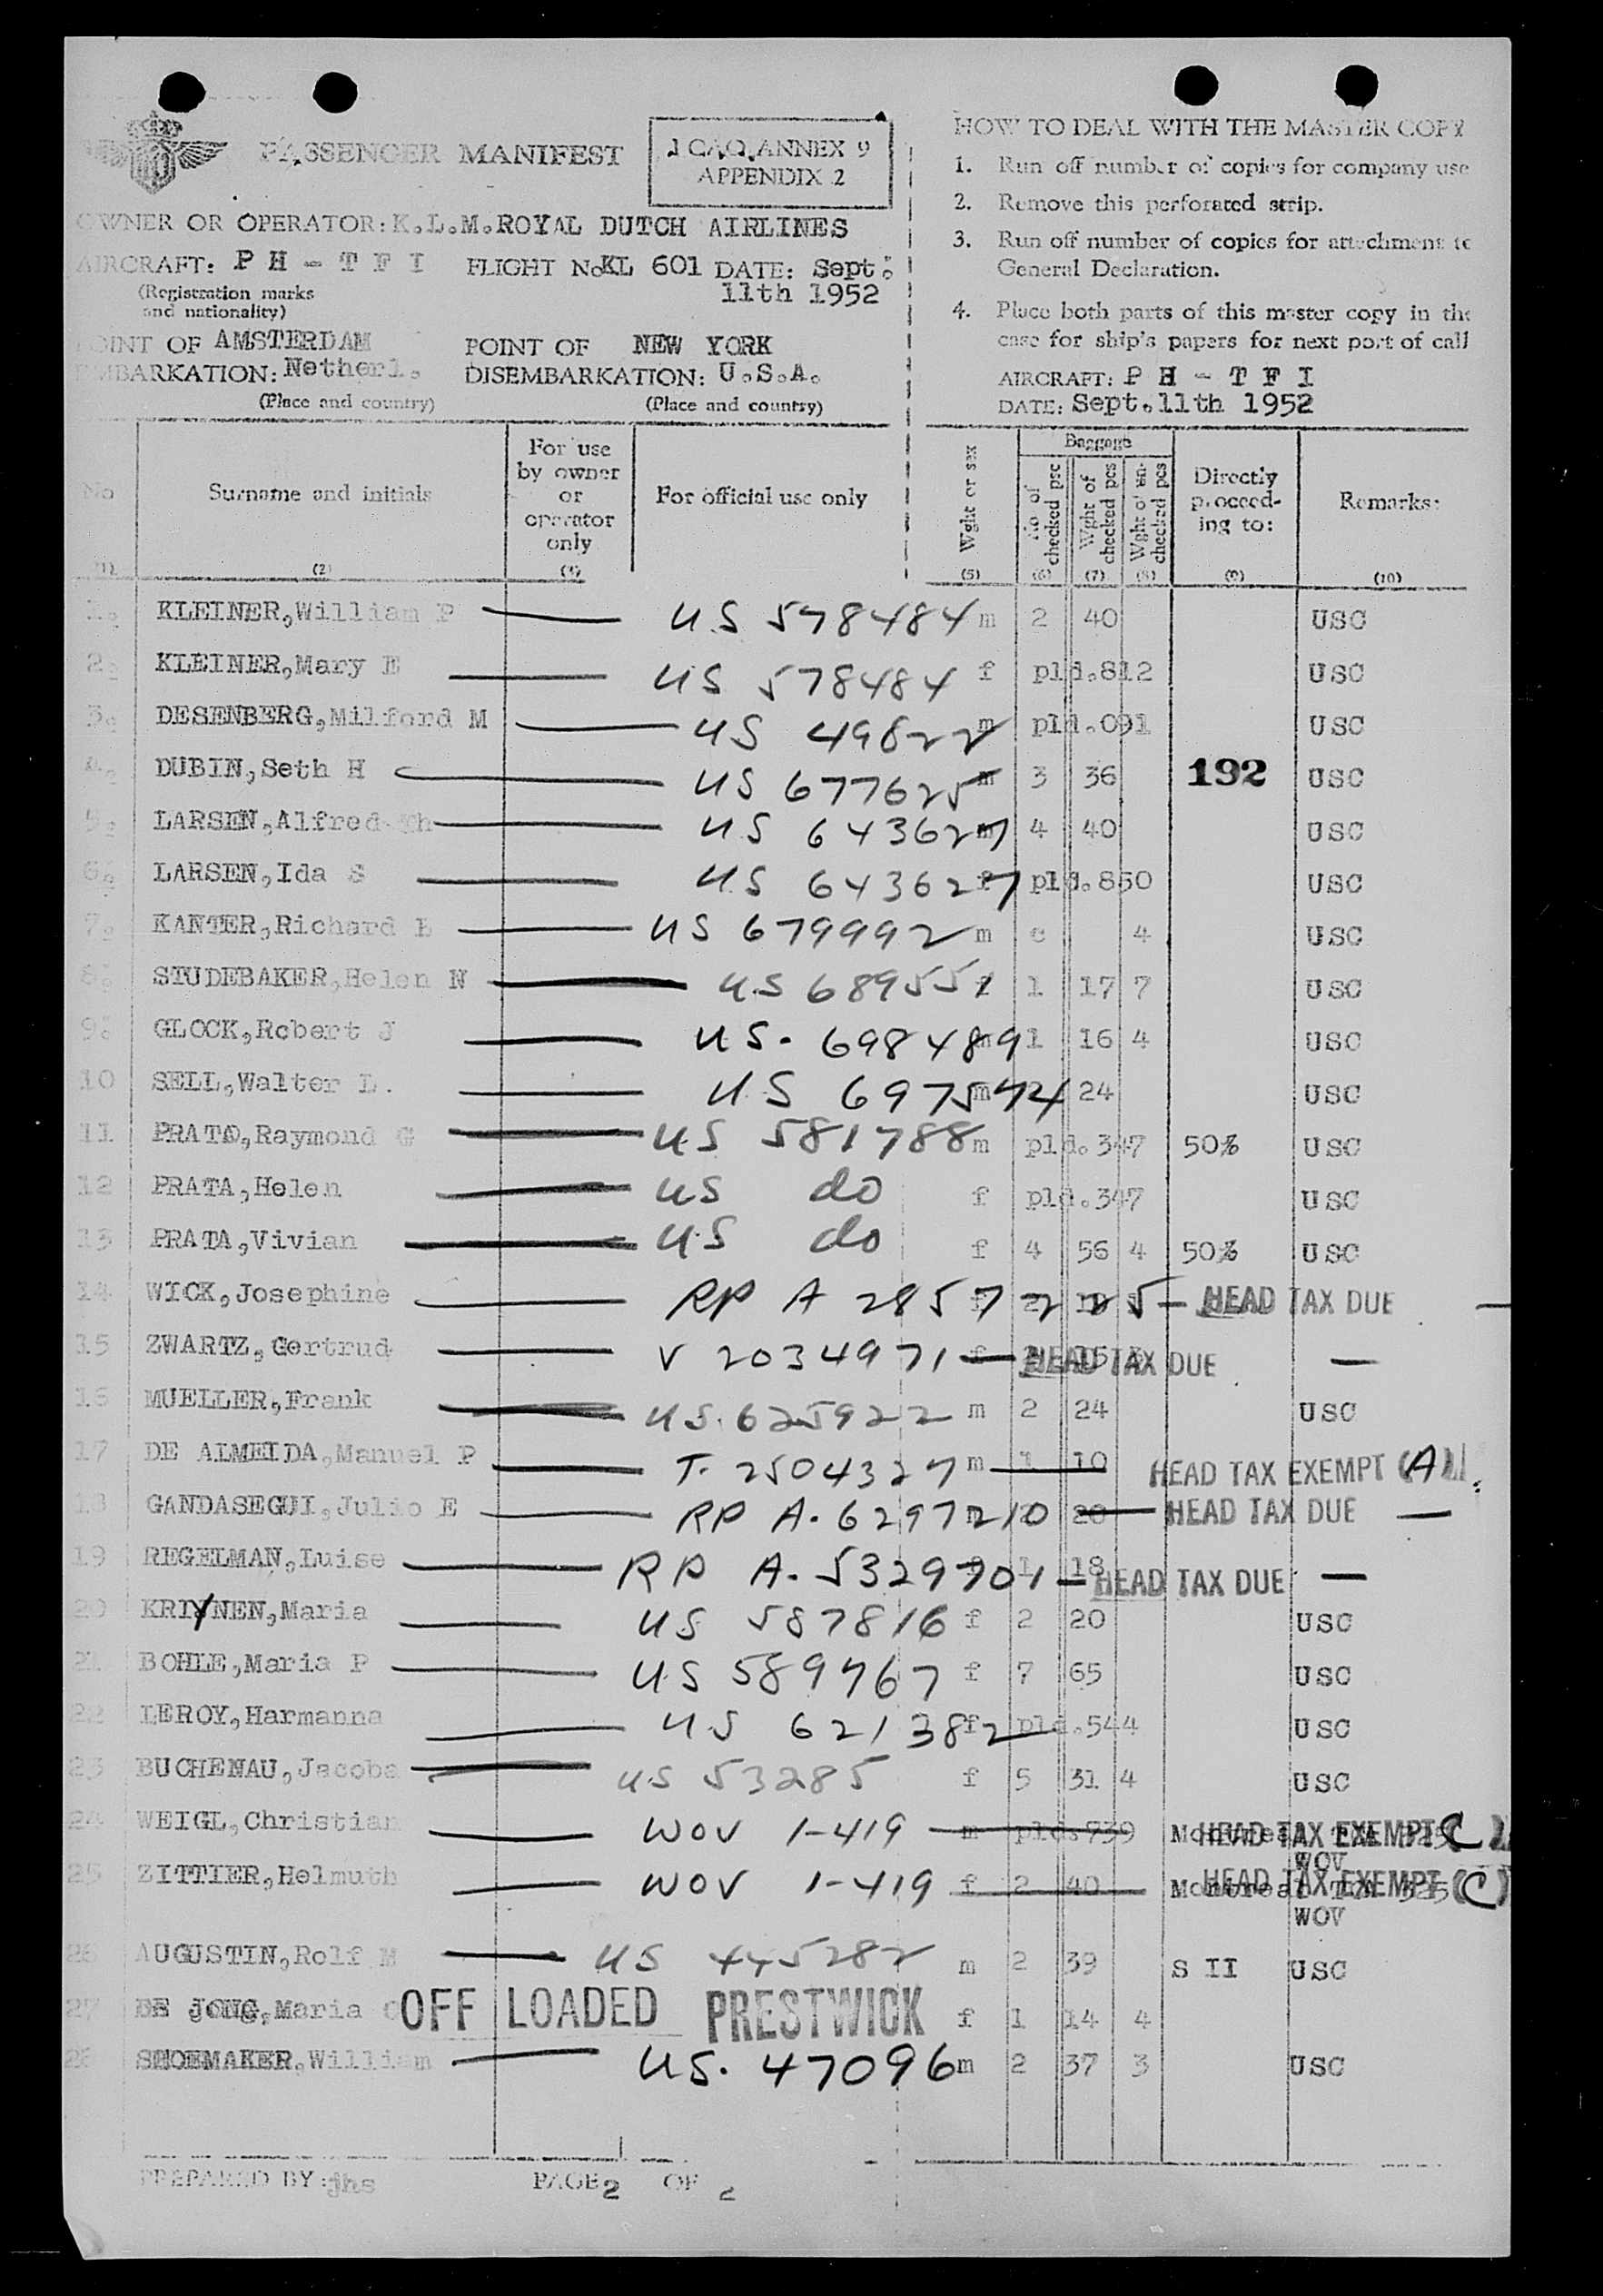 PASSENGER MANIFEST
I CAO ANNEX 9
APPENDIX 2
OWNER OR OPERATOR: K.L.M. ROYAL DUTCH AIRLINES
AIRCRAFT: P H - T F I FLIGHT No KL 601 DATE: Sept.
(Registration marks and nationality) 11th 1952
POINT OF AMSTERDAM POINT OF NEW YORK
EMBARKATION: Netherl. DISEMBARKATION: U.S.A.
(Place and country) (Place and country)
HOW TO DEAL WITH THE MASTER COPY
1. Run off number of copies for company use
2. Remove this perforated strip.
3. Run off number of copies for attachment to
General Declaration.
4. Place both parts of this master copy in the
case for ship's papers for next port of call
AIRCRAFT: P H - T F I
DATE: Sept. 11th 1952
No Surname and initials For use by owner or operator only For official use only Wght or sex Baggage No of checked pcs Wght of checked pcs Wght of un-checked pcs Directly proceed-ing to: Remarks:
(1) (2) (3) (5) (6) (7) (8) (9) (10)
1. KLEINER, William P US 578484 m 2 40 USC
2. KLEINER, Mary E US 578484 f pld.812 USC
3. DESENBERG, Milford M US 49822 m pld.091 USC
4. DUBIN, Seth H US 677625 m 3 36 192 USC
5. LARSEN, Alfred Th US 643627 m 4 40 USC
6. LARSEN, Ida S US 643627 f pld.850 USC
7. KANTER, Richard US 679992 m c 4 USC
8. STUDEBAKER, Helen N US 689551 f 1 17 7 USC
9. GLOCK, Robert J US. 698489 m 1 16 4 USC
10 SELL, Walter L. US 697574 m 24 USC
11 PRATA, Raymond G US 581788 m pld.347 50% USC
12 PRATA, Helen US do f pld.347 USC
13 PRATA, Vivian US do f 4 56 4 50% USC
14 WICK, Josephine RP A 2857225 HEAD TAX DUE
15 ZWARTZ, Gertrud V 2034971 f HEAD TAX DUE
16 MUELLER, Frank US. 625922 m 2 24 USC
17 DE ALMEIDA, Manuel P T. 2504327 m 1 10 HEAD TAX EXEMPT (A)
18 GANDASEGUI, Julio E RP A. 6297210 20 HEAD TAX DUE
19 REGELMAN, Luise RP A. 5329701 f 1 18 HEAD TAX DUE
20 KRIYNEN, Maria US 587816 f 2 20 USC
21 BOHLE, Maria P US 589767 f 7 65 USC
22 LEROY, Harmanna US 621382 f pld.544 USC
23 BUCHENAU, Jacoba US 53285 f 5 31 4 USC
24 WEIGL, Christian WOV 1-419 m pld.739 Montreal HEAD TAX EXEMPT (C)
WOV
25 ZITTIER, Helmuth WOV 1-419 f 2 40 Montreal HEAD TAX EXEMPT (C)
WOV
26 AUGUSTIN, Rolf M US 445282 m 2 39 S II USC
27 DE JONG, Maria C OFF LOADED PRESTWICK f 1 14 4
28 SHOEMAKER, William US. 47096 m 2 37 3 USC
PREPARED BY: jhs PAGE 2 OF 2